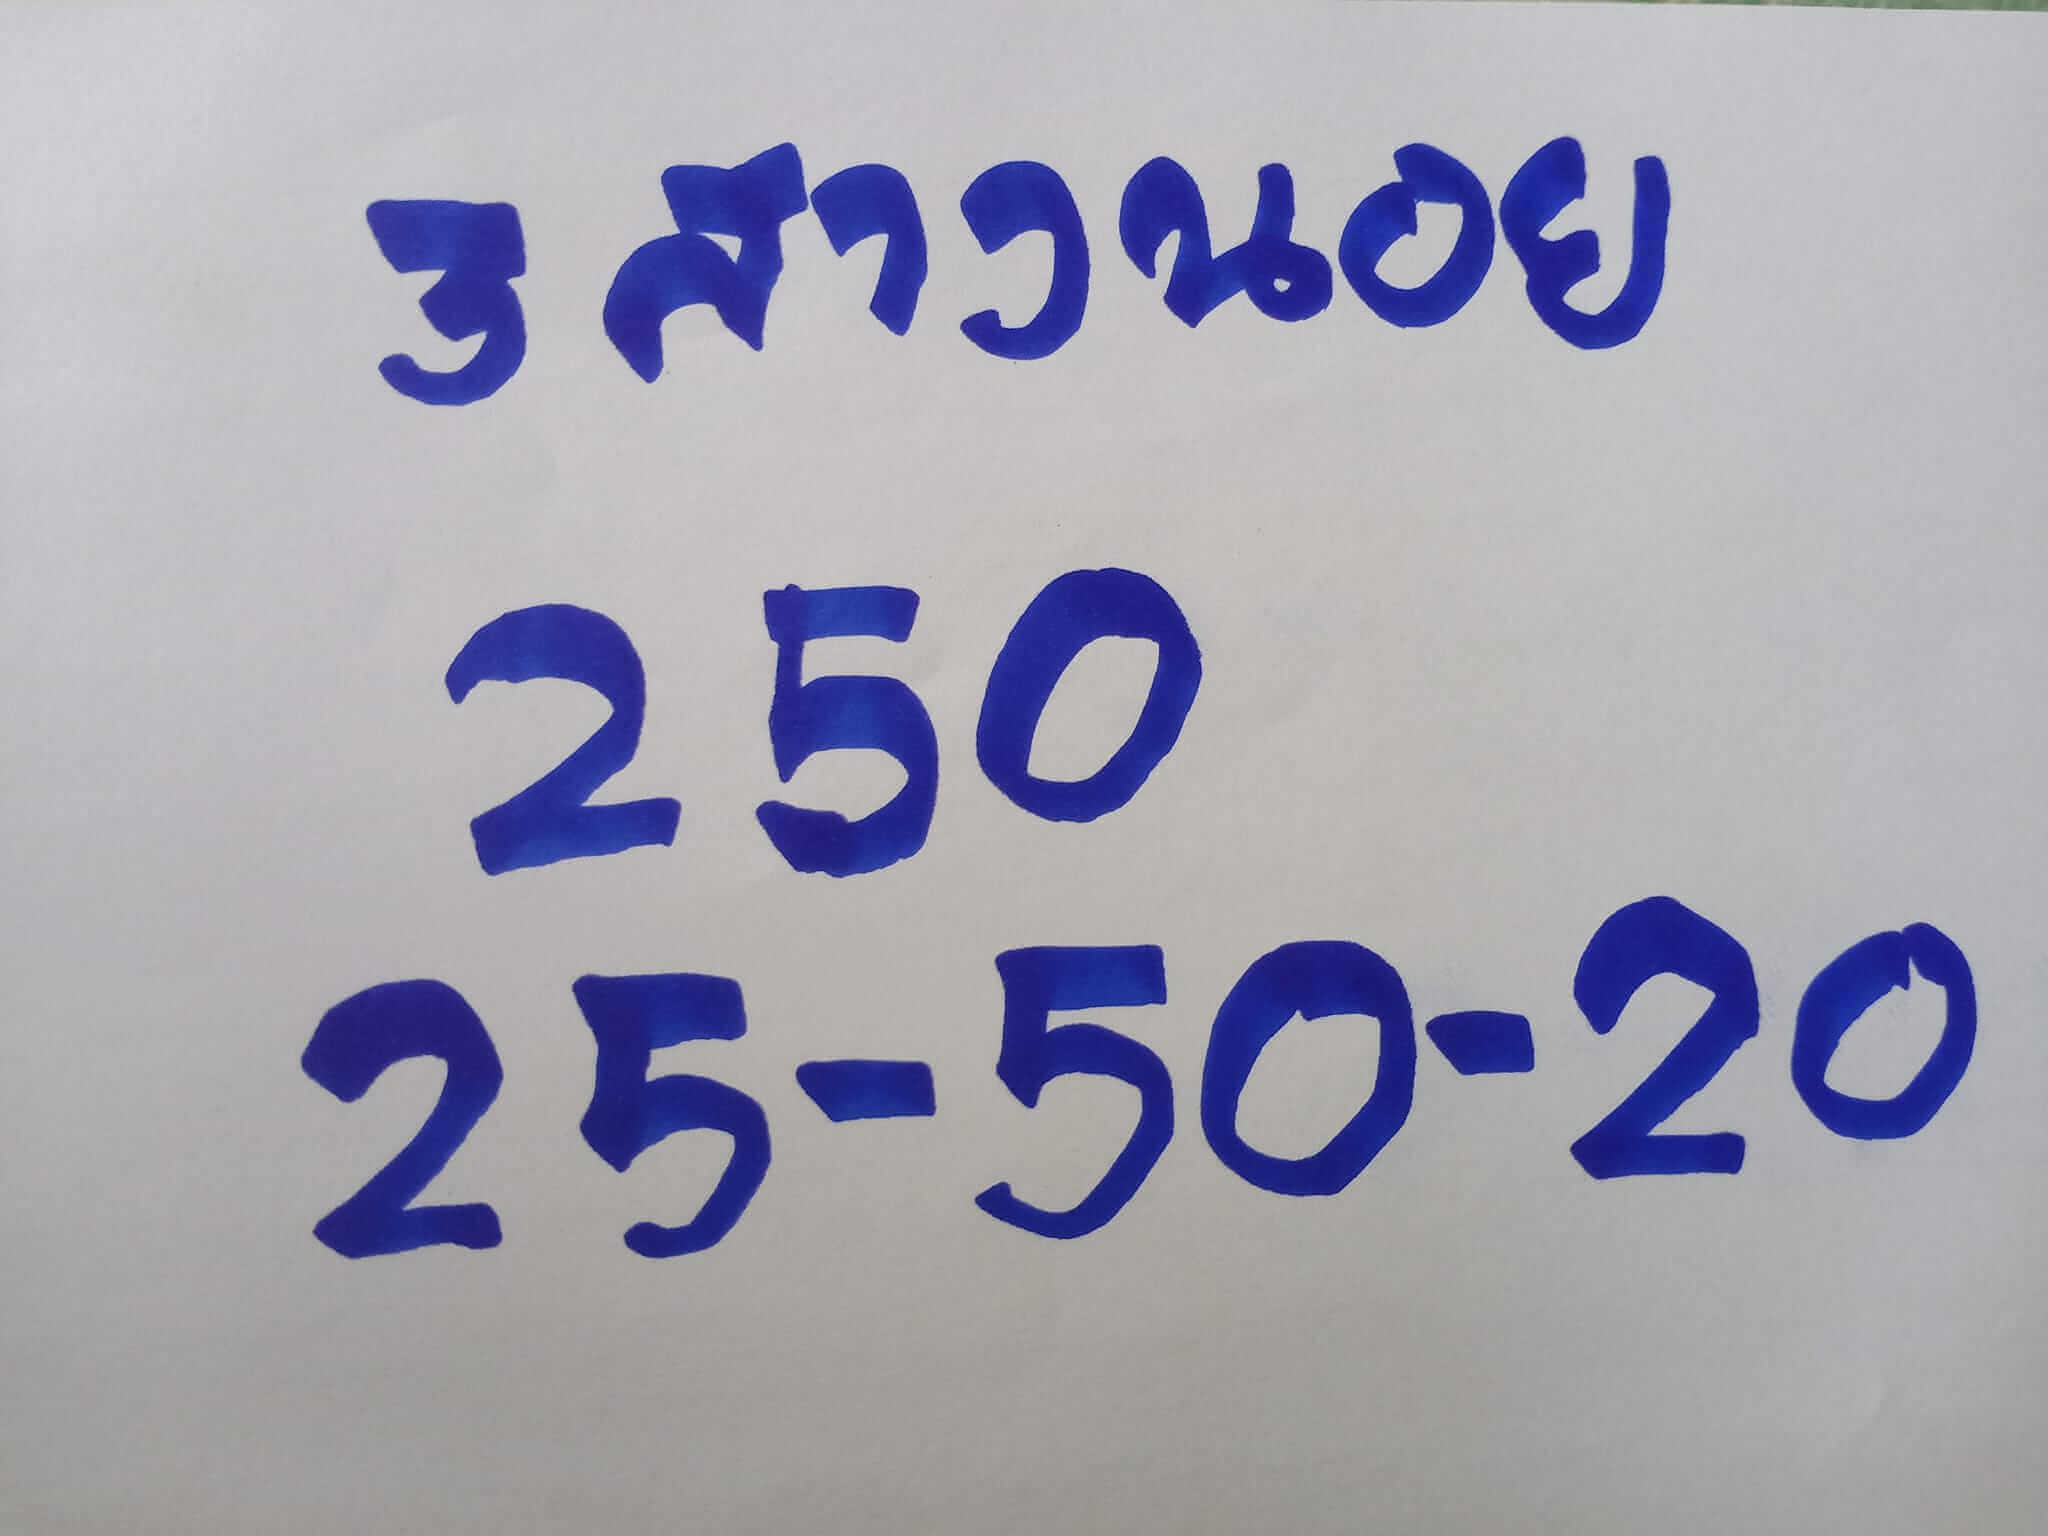 3 สาวนอย
250
25-50-20